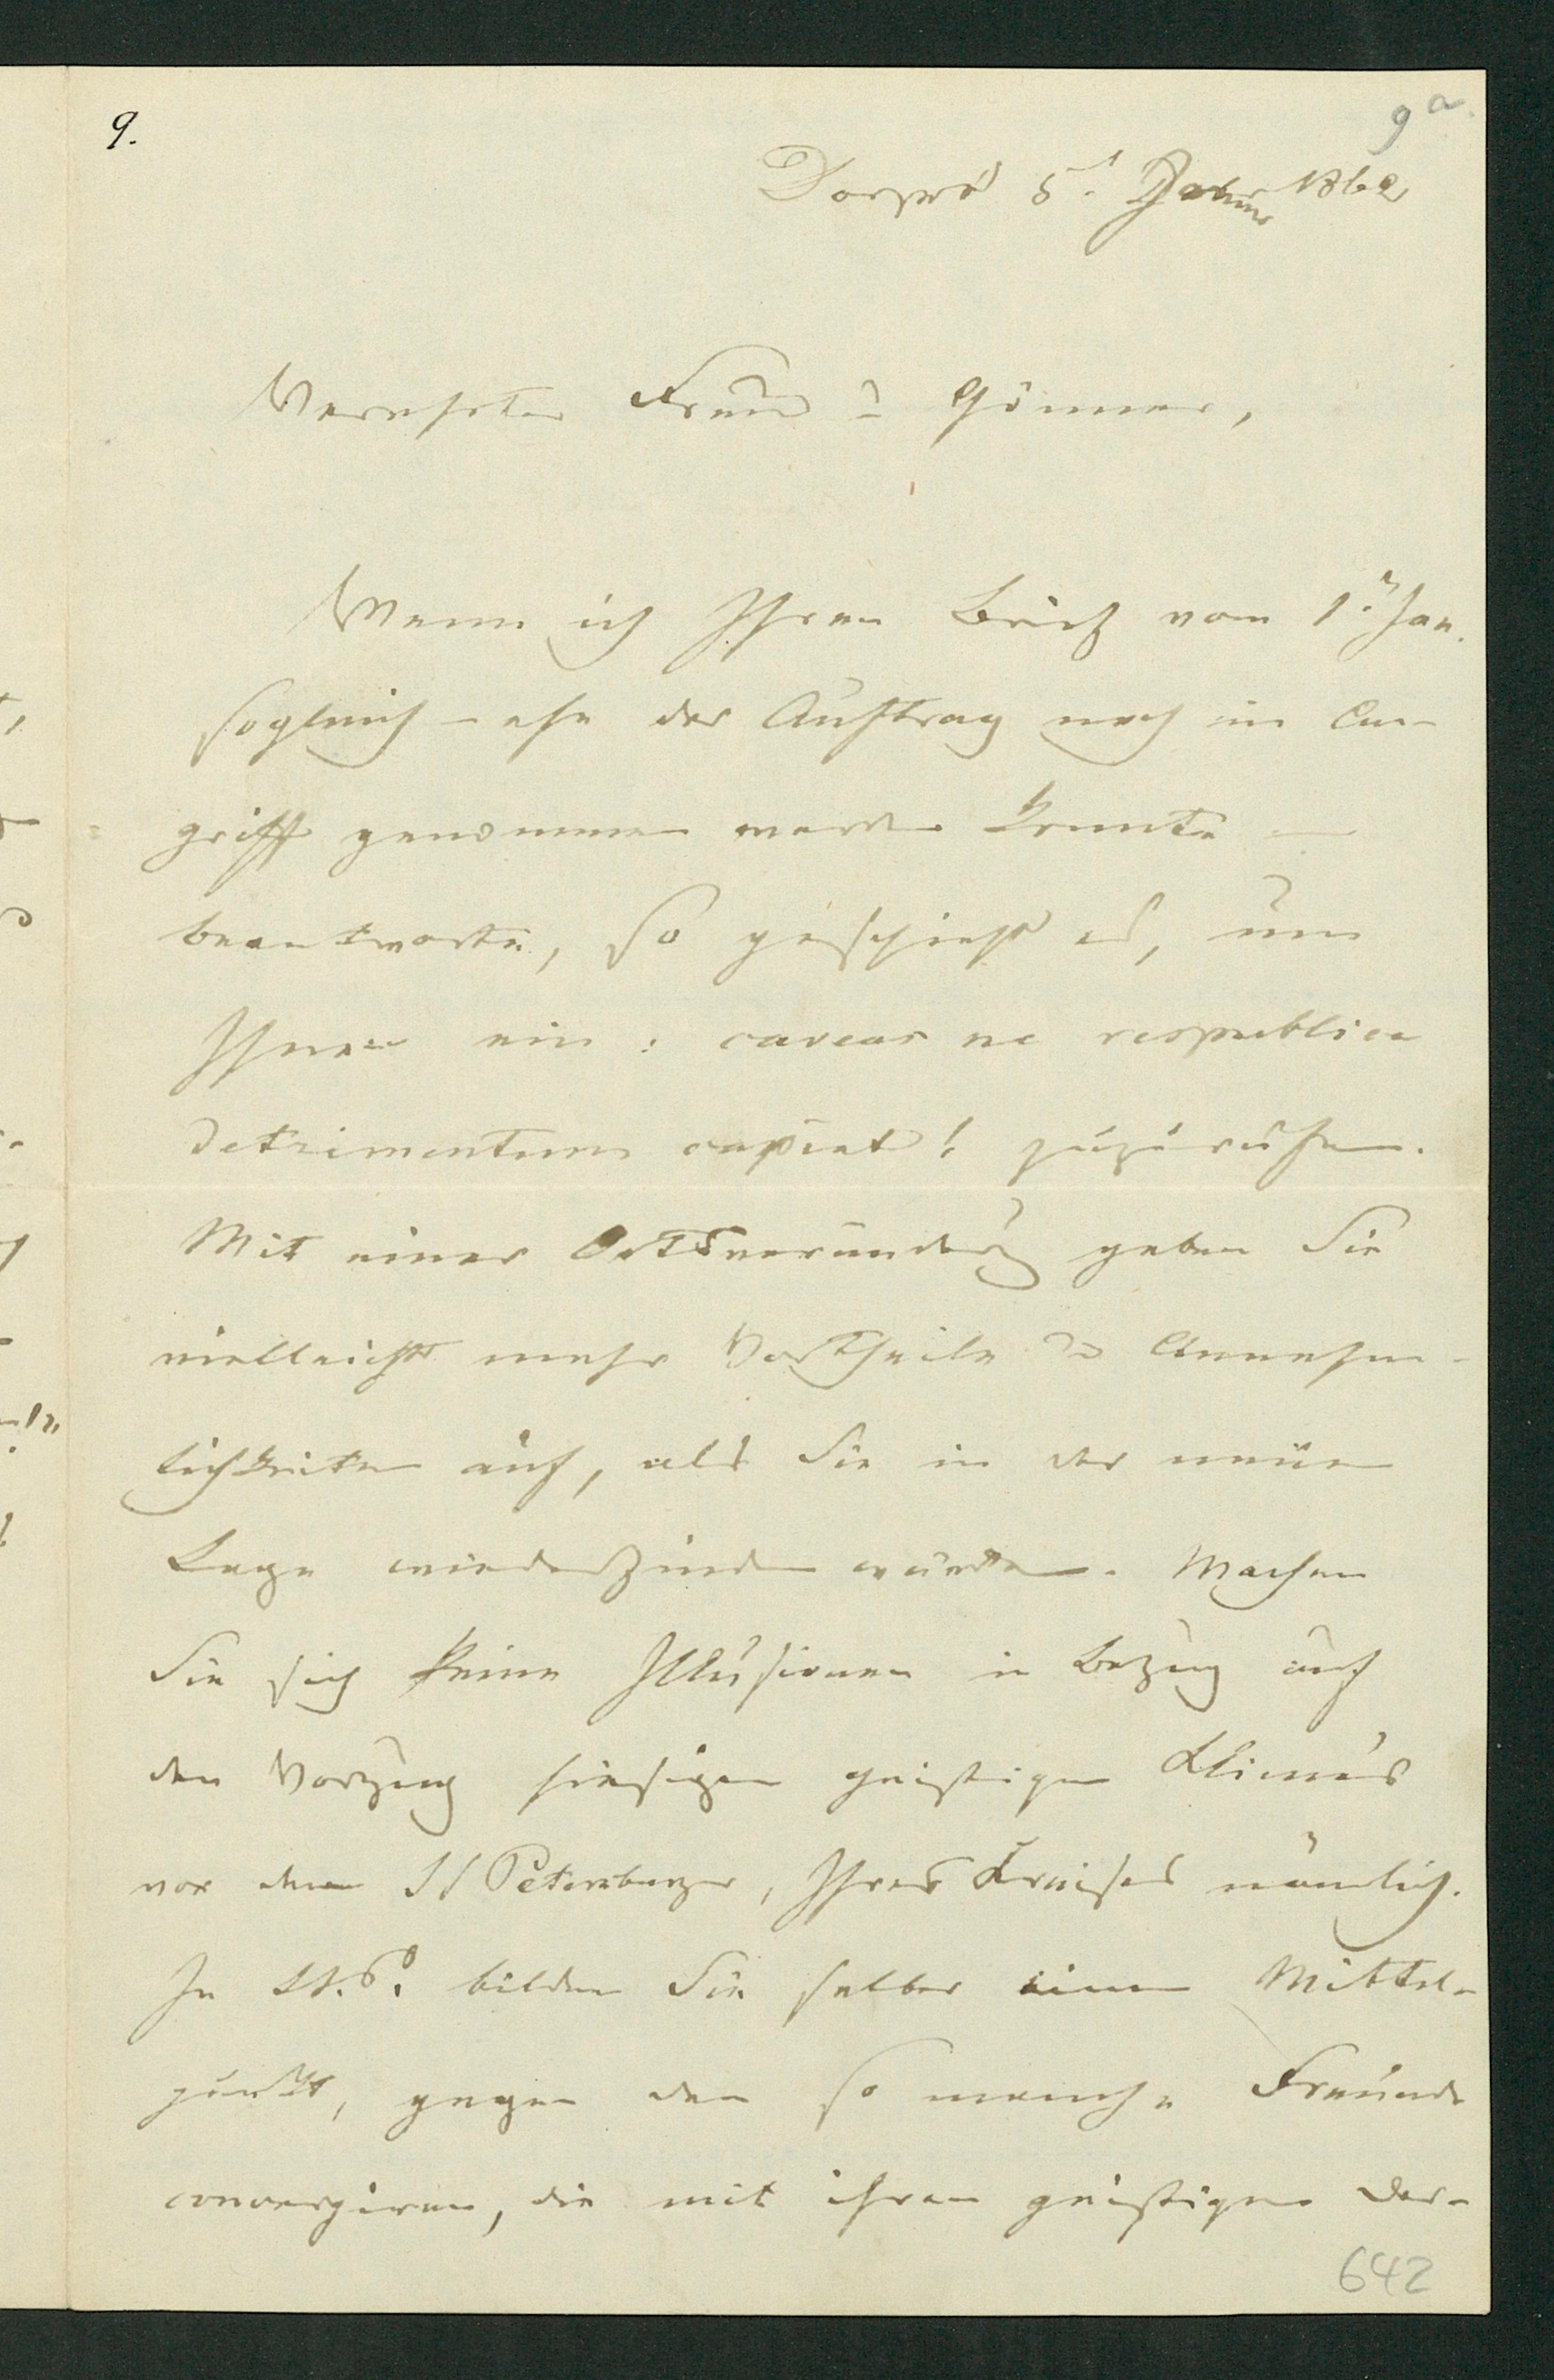 9.
9a.
Dorpat 5t. Januar 1862
Verehrter Freund u Gönner,
Wenn ich Ihren Brief vom 1n. Jan.
sogleich – ehe der Auftrag noch in An-
griff genommen werden konnte –
beantworte, so geschieht es, um
Ihnen ein: caveas ne respublica
detrimentum capiat! zuzurufen.
Mit einer Ortsveränderg geben Sie
vielleicht mehr Vortheile u Annehm-
lichkeiten auf, als Sie in der neuen
Lage wiederfinden würden. Machen
Sie sich keine Illusionen in Bezug auf
den Vorzug hiesigen geistigen Klima's
vor dem St Petersburger, Ihres Kreises nämlich.
In St. P. bilden Sie selber einen Mittel-
punkt, gegen den so manche Freunde
convergiren, die mit ihren geistigen Dar-
642